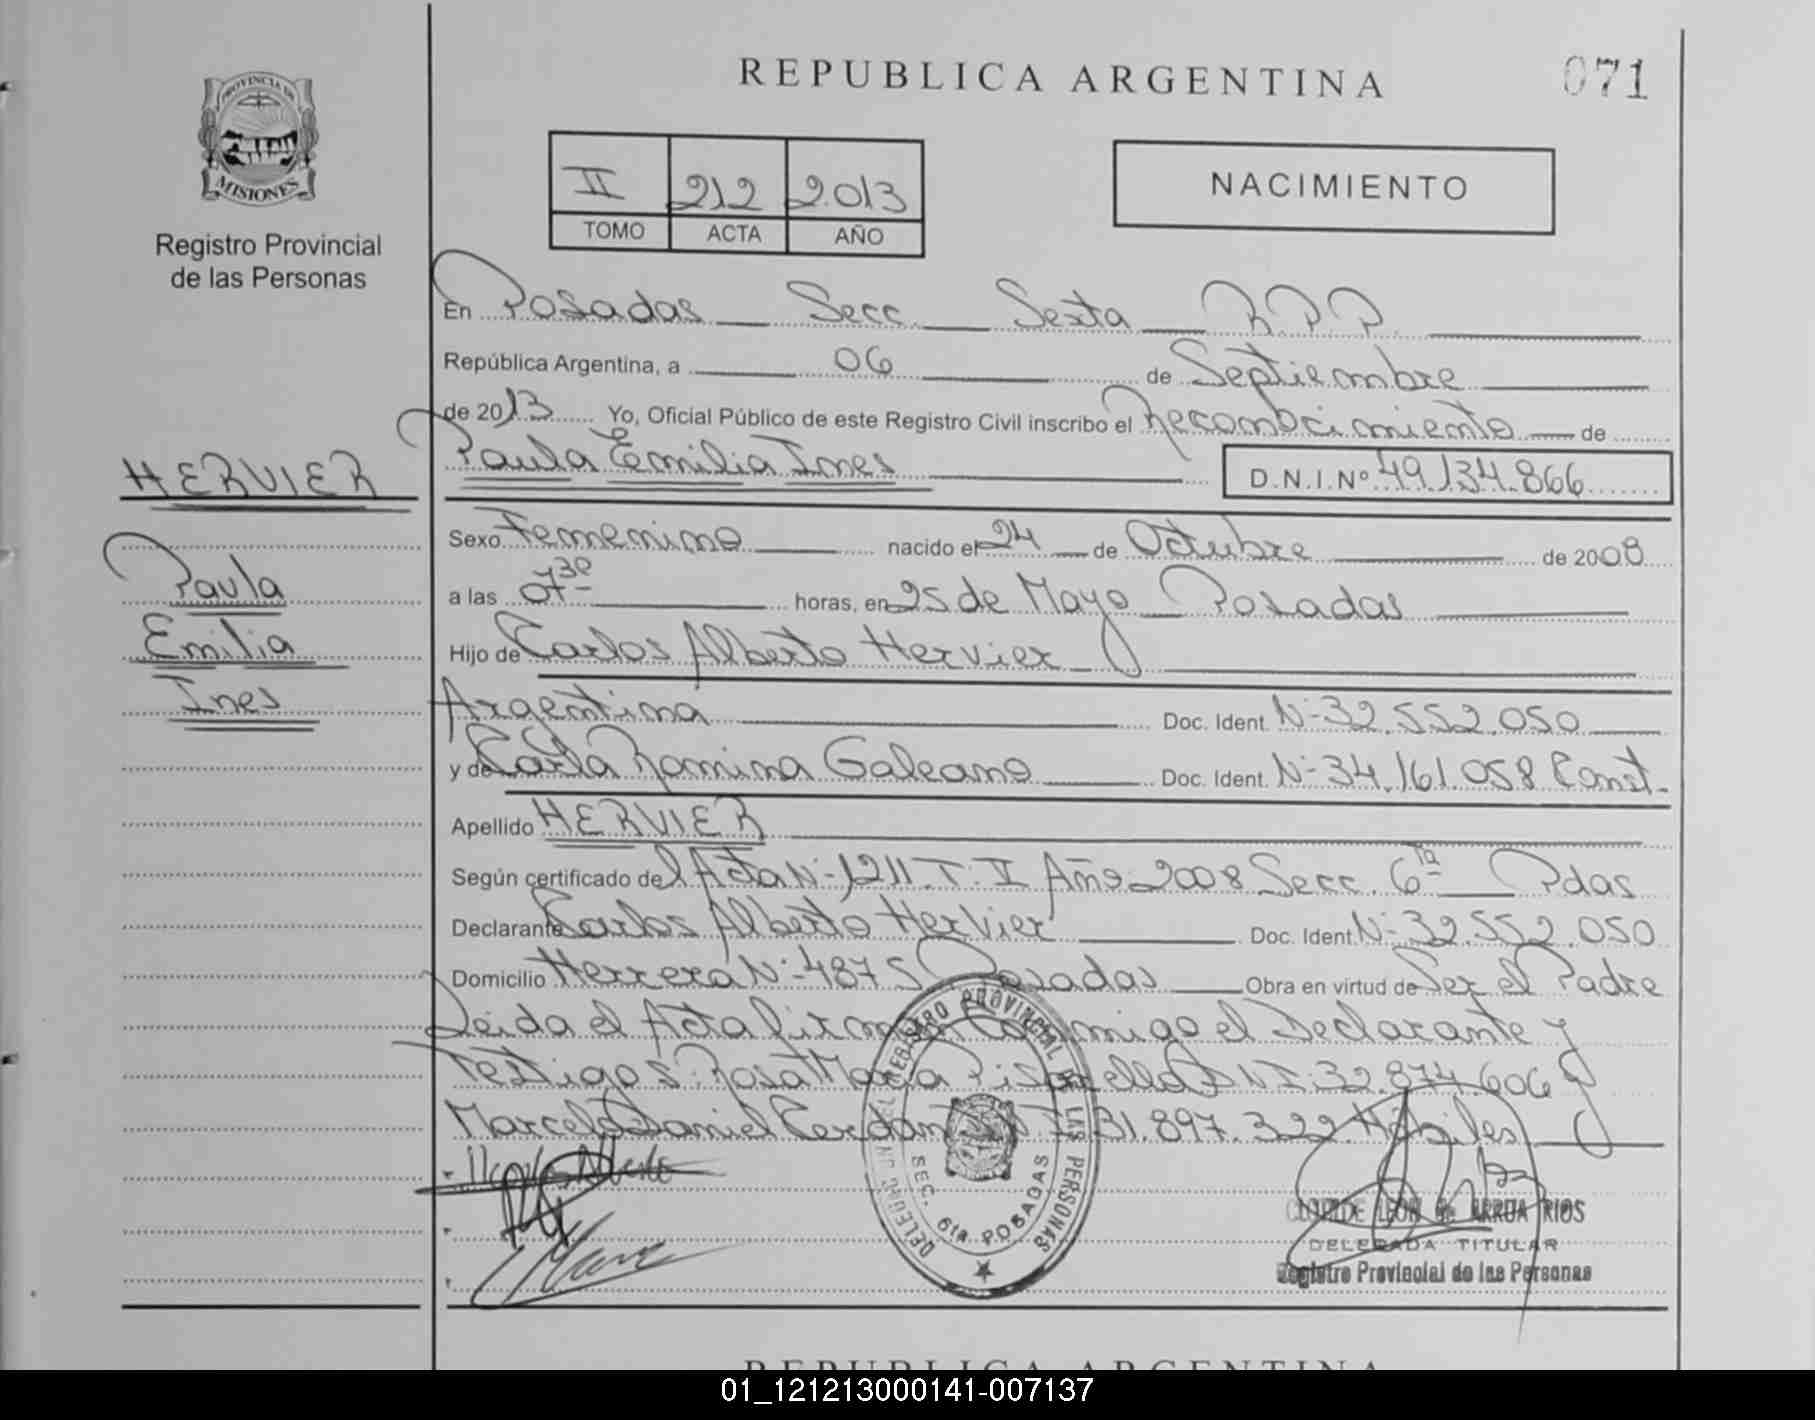 REPUBLICA ARGENTINA
071
PROVINCIA DE
MISIONES
Registro Provincial
de las Personas
II 212 2.013
TOMO ACTA AÑO
NACIMIENTO
En Posadas Secc. Sexta R.P.P.
República Argentina, a 06 de Septiembre
de 2013 Yo, Oficial Público de este Registro Civil inscribo el Reconocimiento de
Paula Emilia Ines D.N.I.Nº 49.134.866
HERVIER
Paula
Emilia
Ines
Sexo Femenino nacido el 24 de Octubre de 2008
a las 07³⁰ horas, en 25 de Mayo Posadas
Hijo de Carlos Alberto Hervier
Argentina Doc. Ident. Nº 32.552.050
y de Carla Romina Galeano Doc. Ident. Nº 34.161.058 Const.
Apellido HERVIER
Según certificado del Acta Nº 1211 T. II Año 2008 Secc. 6ta Pdas
Declarante Carlos Alberto Hervier Doc. Ident. Nº 32.552.050
Domicilio Herrera Nº 4875 Posadas Obra en virtud de Ser el Padre
Leida el Acta firman Conmigo el Declarante y
Testigos Rosa Maria DNI 32.874.606
Marcelo Daniel 31.897.322 Hábiles
DELEGACION DEL REGISTRO PROVINCIAL DE LAS PERSONAS
SEC. 6ta POSADAS
CLOTILDE LEON de ARRUA RIOS
DELEGADA TITULAR
Registro Provincial de las Personas
REPUBLICA ARGENTINA
01_121213000141-007137